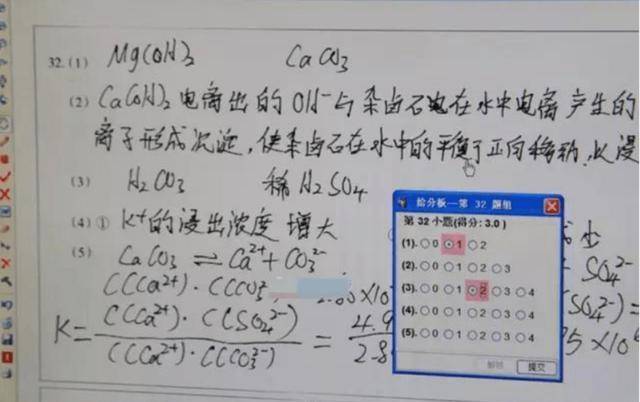 32.(1) Mg(OH)2 CaCO3
(2) Ca(OH)2电离出的OH-与杂卤石电在水中电离产生的
离子形成沉淀，使杂卤石在水中的平衡于正向移动，K浸
(3) H2CO3 稀H2SO4
(4)① K+的浸出浓度 增大
(5) CaCO3 ⇌ Ca2+ + CO3 2-
SO4 2-
C(Ca2+)·C(CO3 2-
×10
(SO4 2-) =
K = C(Ca2+)·C(SO4 2-) / C(Ca2+)·C(CO3 2-) = 4.9 / 2.8
5 ×10
给分板—第 32 题组
第 32 小题(得分: 3.0 )
(1). 0 1 2
(2). 0 1 2 3
(3). 0 1 2 3 4
(4). 0 1 2 3 4
(5). 0 1 2 3 4
提交